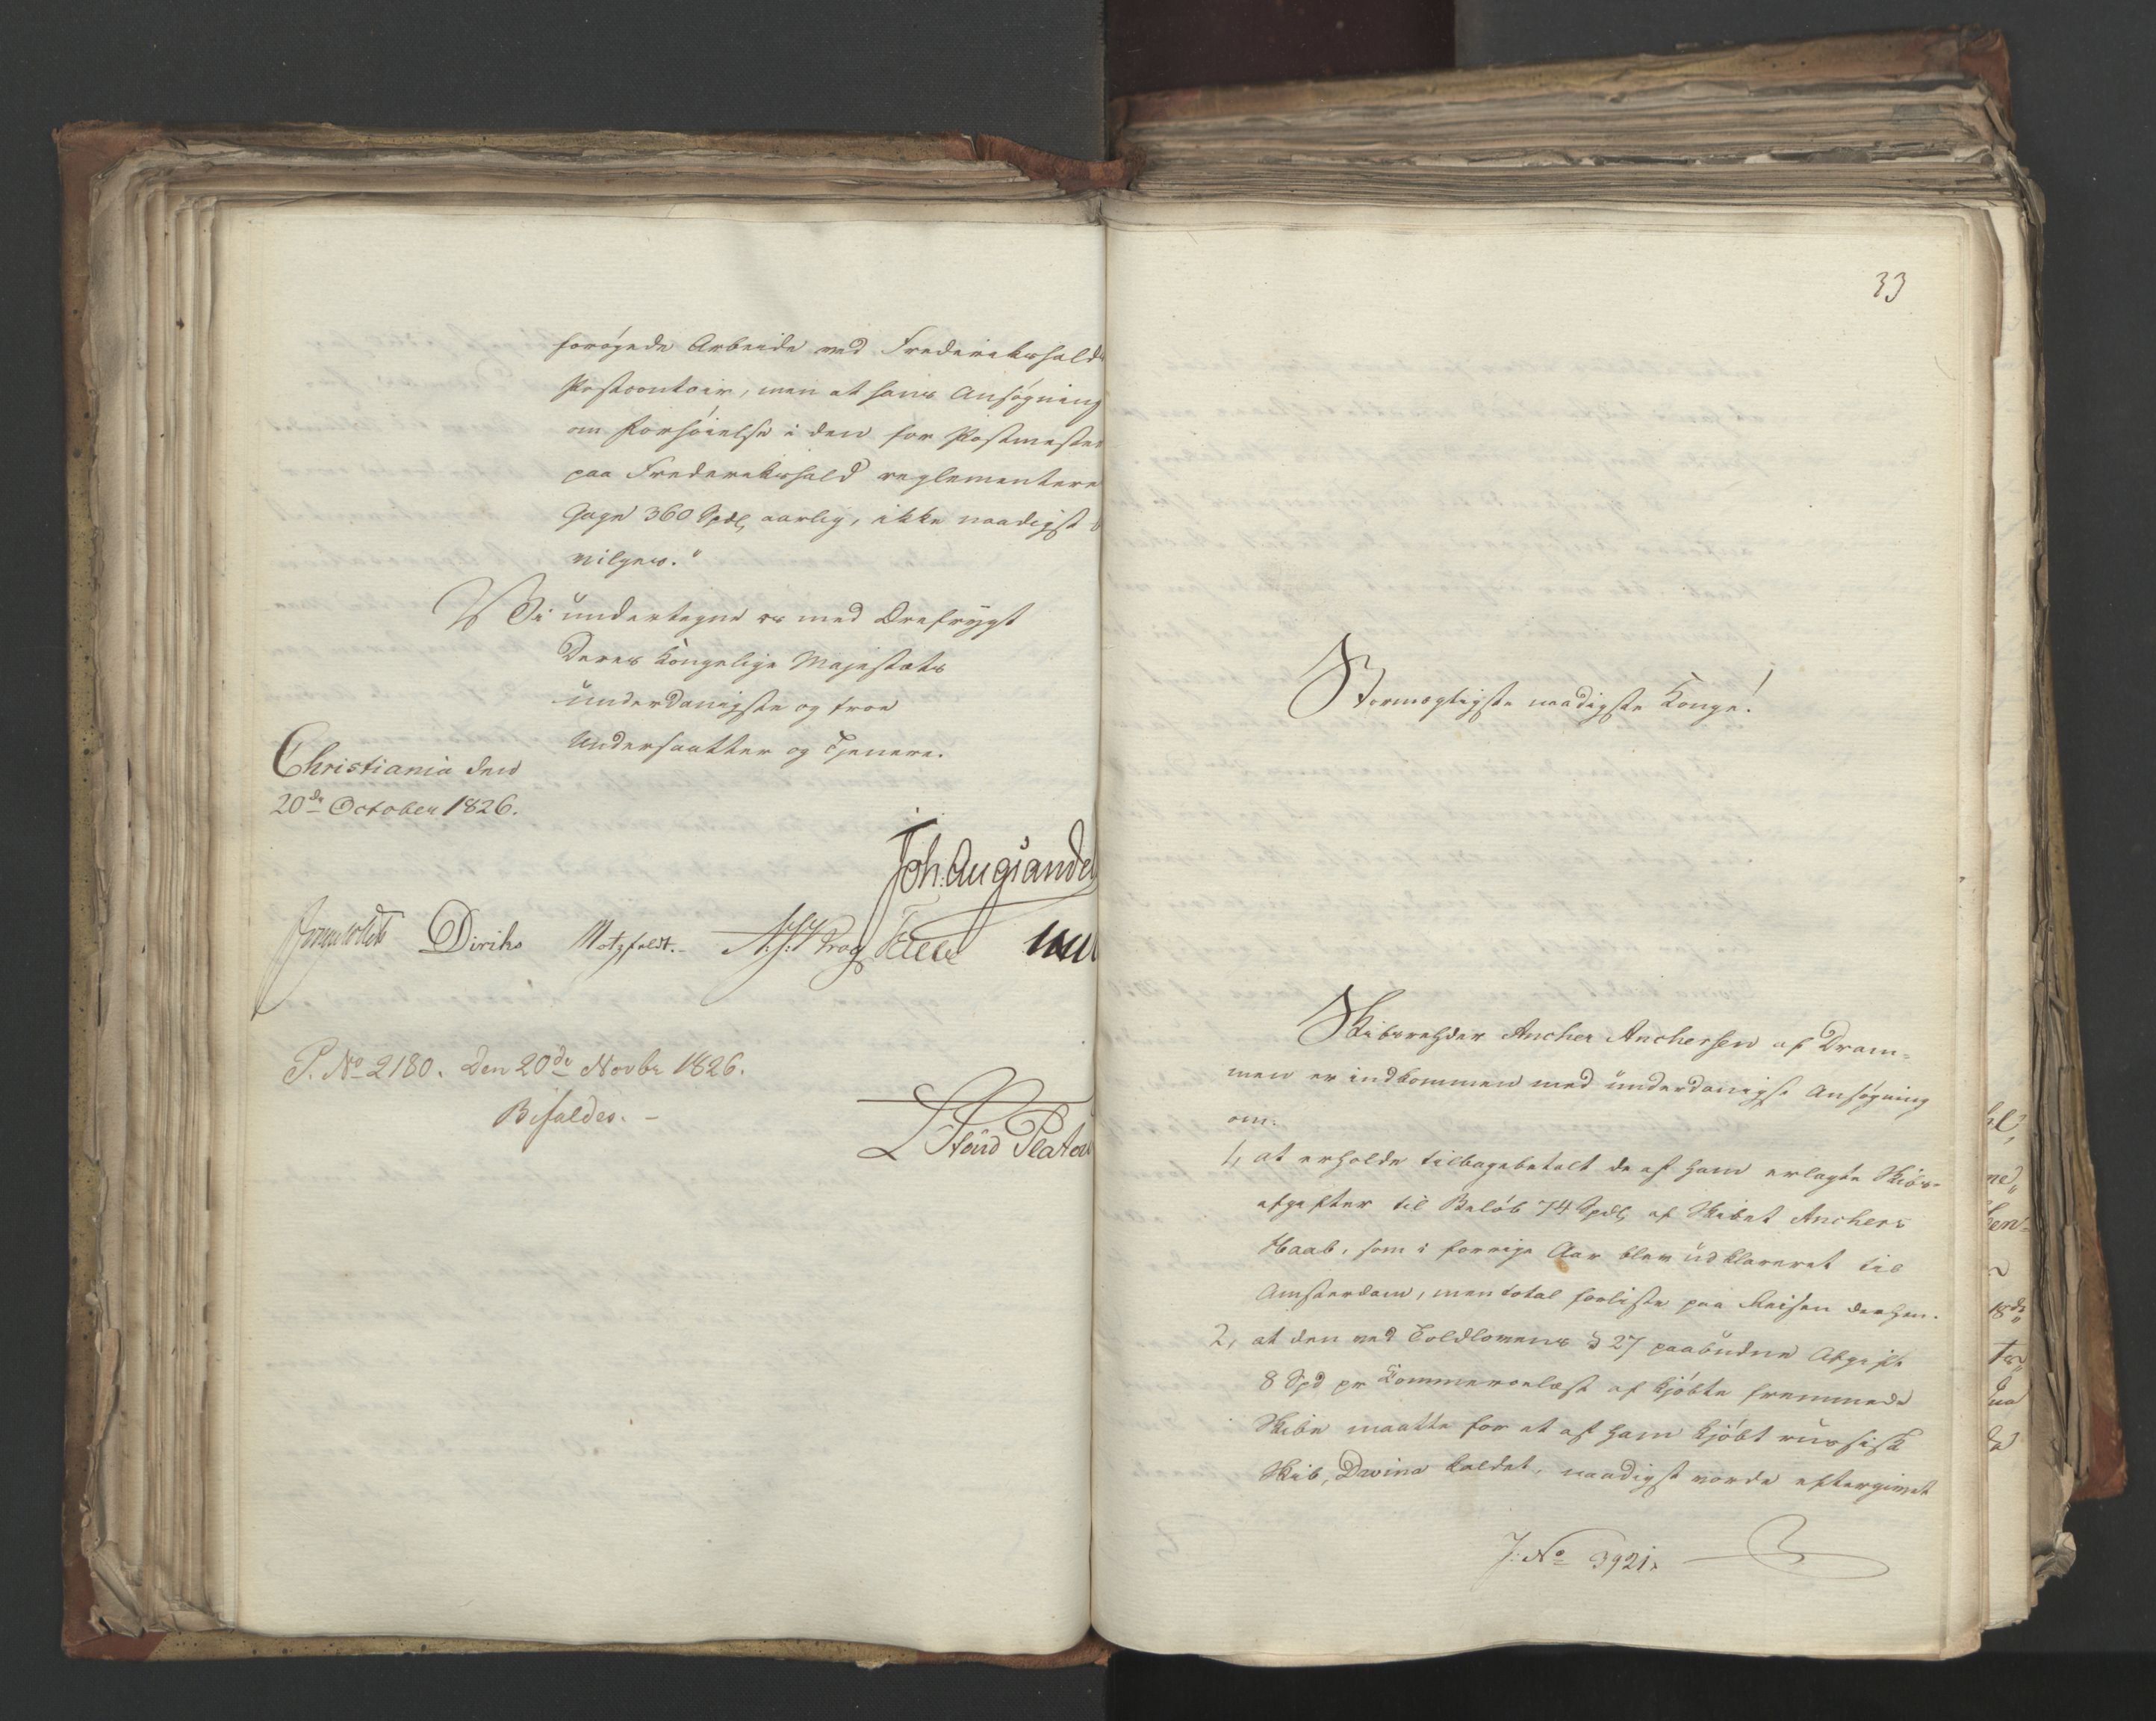 forøgede Arbeide ved Frederikshalds
Postcontoir, men at hans Ansøgning
om Forhøielse i den for Postmesteren
paa Frederikshald reglementere
Gage 360 Spdl, aarlig, ikke naadigst
vilges."
Vi undertegne os med Ærefrygt
Deres Kongelige Majestæts
underdanigste og troe
Undersaatter og Tjenere.
Christiania den
20de October 1826.
Joh: Aug Sande
Sommerfeldt Diriks Motzfeldt. Krog Fasting
P. No 2180. Den 20de Novbr 1826.
Bifaldes. -
Platou
33
Stormægtigste naadigste Konge!
Skibsrehder Ancher Anchersen af Dram=
men er indkommen med underdanigst Ansøgning
om:
1, at erholde tilbagebetalt de af ham erlagte Skibs-
afgifter til Beløb 74 Spdl, af Skibet Anchers
Haab, som i forrige Aar blev udklareret til
Amsterdam, men total forliste paa Reisen derhen.
2, at den ved Toldlovens § 27 paabudne Afgift
8 Spd pr Kommercelæst af kjøbte fremmede
Skibe maatte for et af ham kjøbt russisk
Skib, Dwina kaldet, naadigst vorde eftergivet
J: No 3921.